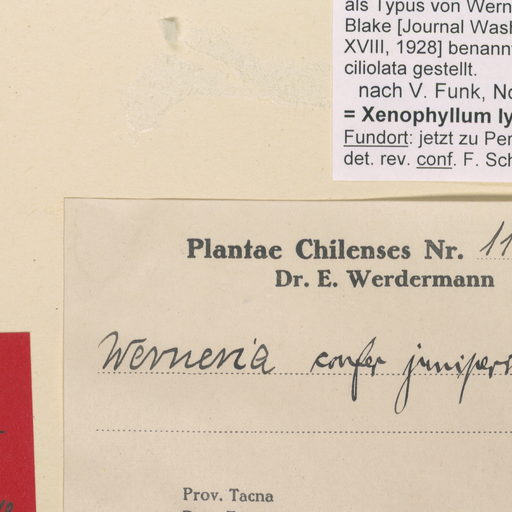 als Typus von Wern
Blake [Journal Wash
XVIII, 1928] benannt
ciliolata gestellt.
nach V. Funk, No
= Xenophyllum ly
Fundort: jetzt zu Per
det. rev. conf. F. Sch
Plantae Chilenses Nr. 11
Dr. E. Werdermann
Werneria confer juniperi
Prov. Tacna